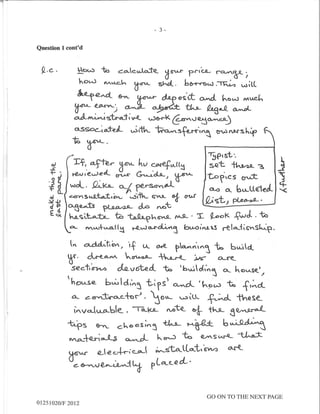 - 3 -
Question 1 cont'd
l.c. How to calculate your price range;
how much you shd. borrow. This will
depend on your deposit and how much
you earn; and about the legal and
administrative work (conveyance)
associated with transferring ownership
to you.
If, after you hv carefully
reviewed our Guide, you
wd. like a personal
consultation with one of our
agents please do not
hesitate to telephone me. I look fwd. to
a mutually rewarding business relationship.
make this ¶ the last para.
Typist:
set these 3
topics out
as a bulleted
list, please.
further
In addition, if u are planning to build
yr. dream house there are
sections devoted to 'building a house',
'house building tips' and 'how to find
a contractor'. You will find these
invaluable. Take note of the general
tips on choosing the right building
materials and how to ensure that
your electrical installations are
conveniently placed.
GO ON TO THE NEXT PAGE
01251020/F 2012